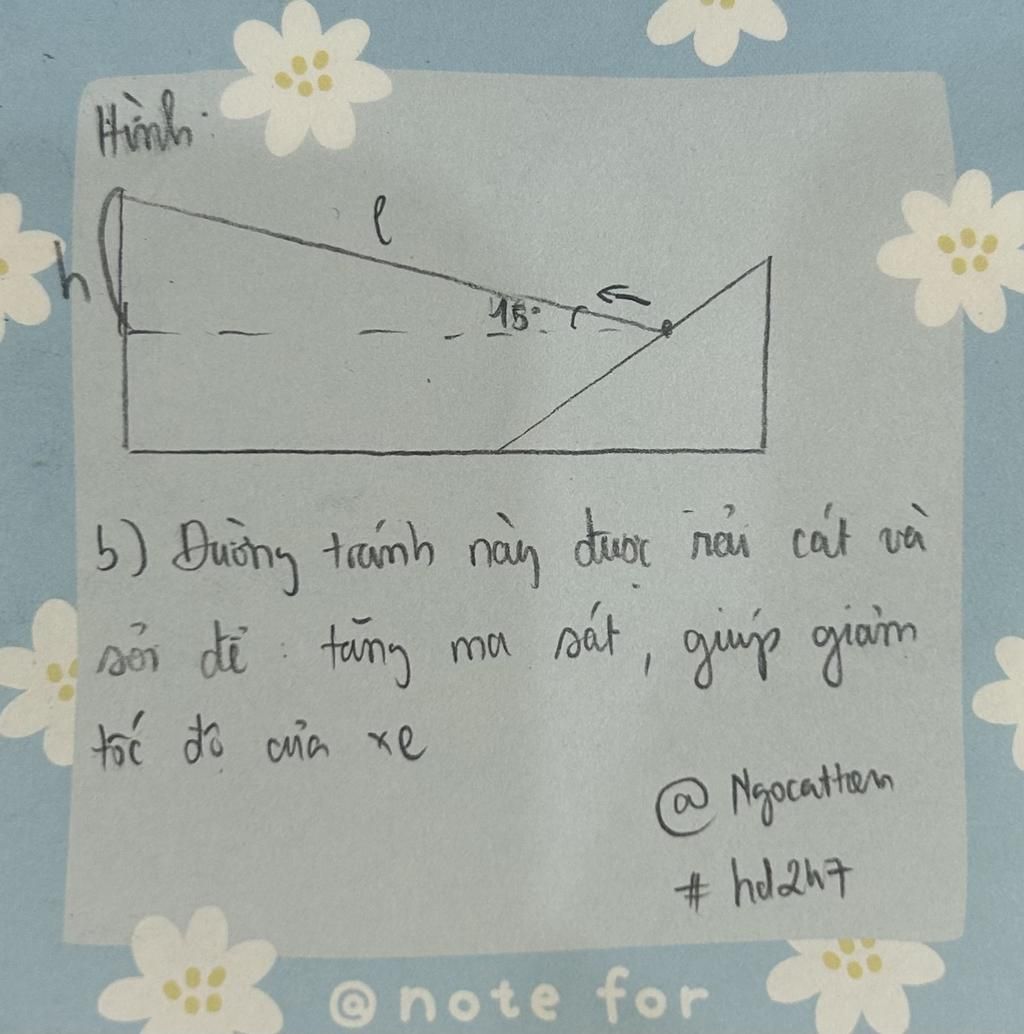 Hình:
l
h
15°
b) Đường tránh này được rải cát và
sỏi để: tăng ma sát, giúp giảm
tốc độ của xe
@ Ngocattem
# hd247
@ note for